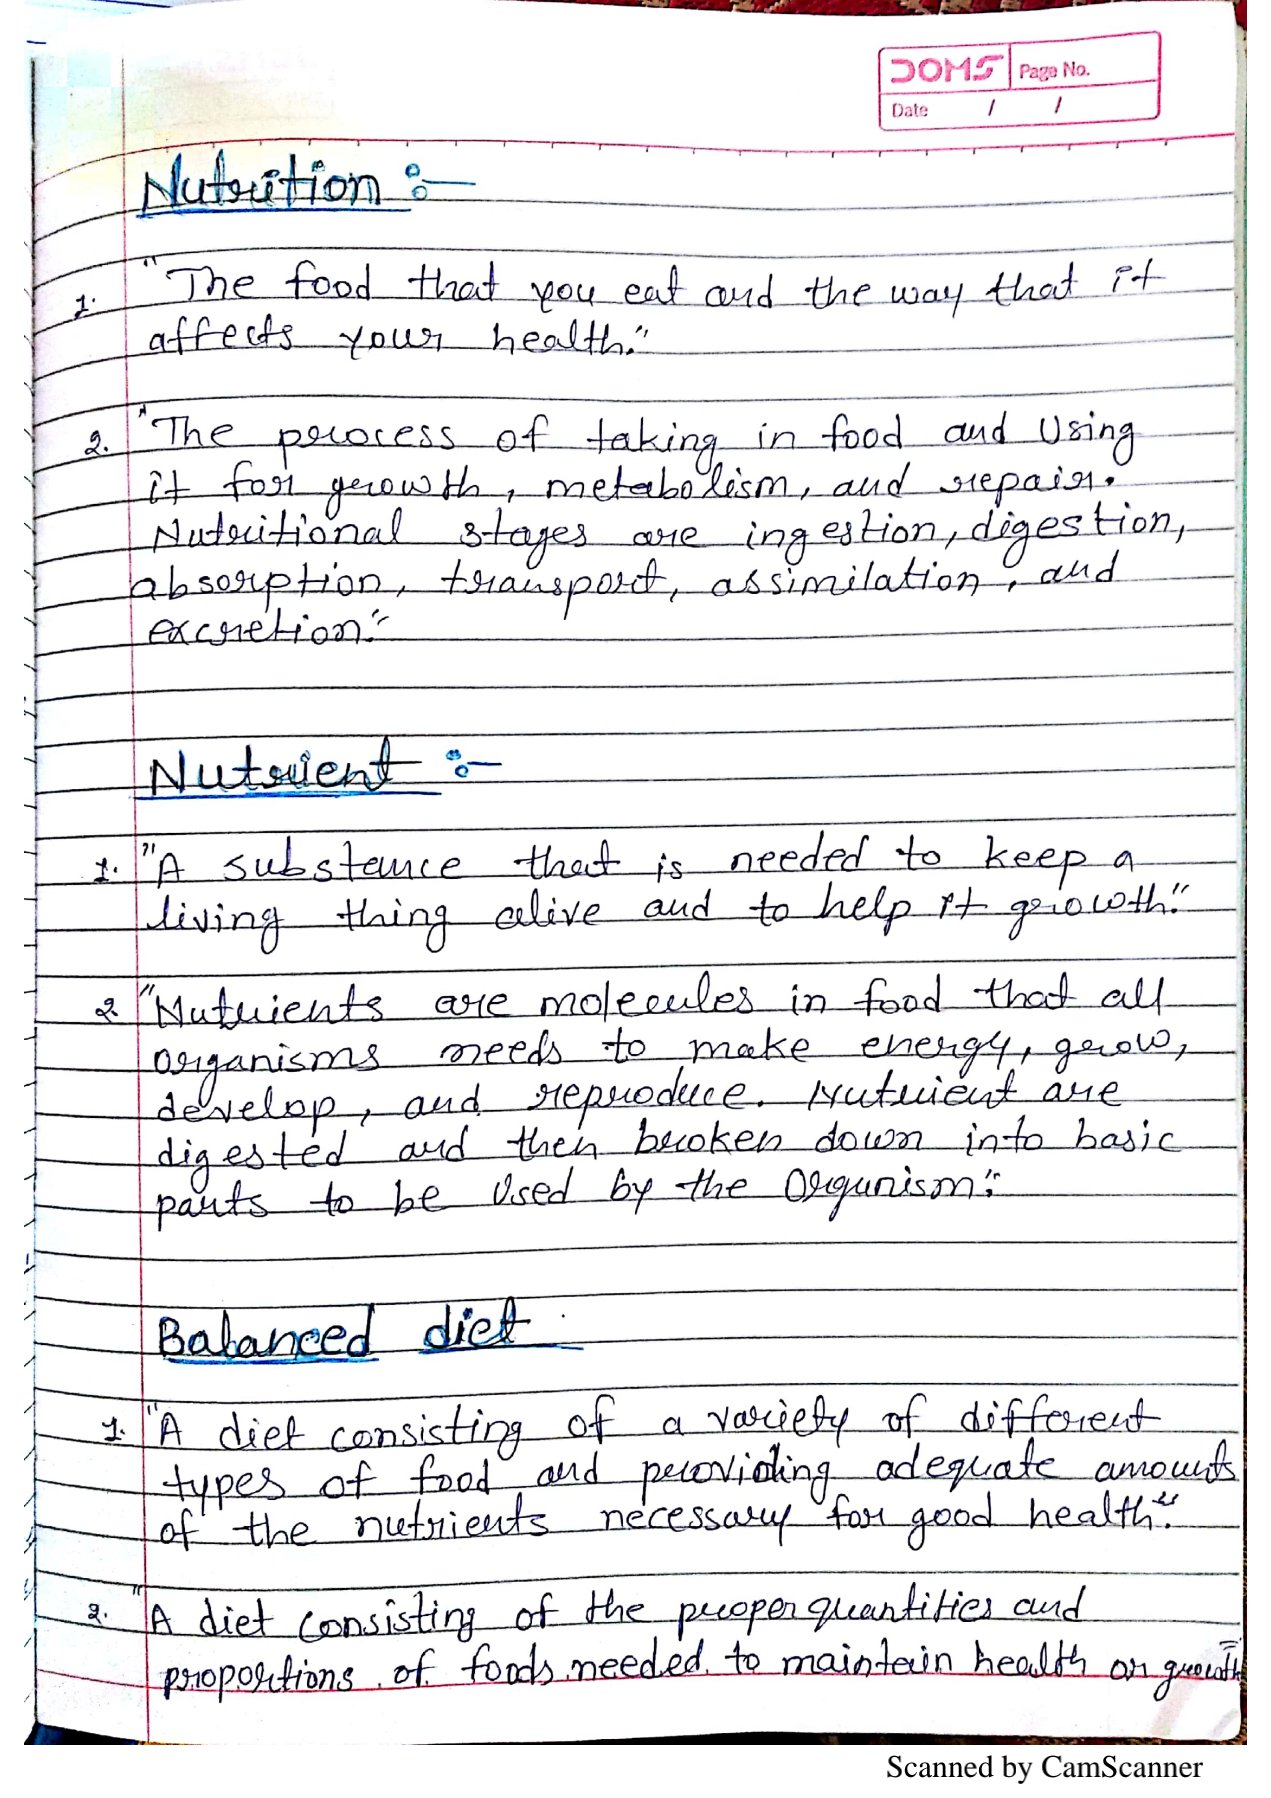 DOMS Page No.
Date / /
Nutrition :-
1. "The food that you eat and the way that it
affects your health."
2. "The process of taking in food and Using
it for growth, metabolism, and repair.
Nutritional stages are ingestion, digestion,
absorption, transport, assimilation, and
excretion."
Nutrient :-
1. "A substance that is needed to keep a
living thing alive and to help it growth."
2 "Nutrients are molecules in food that all
organisms needs to make energy, grow,
develop, and reproduce. Nutrient are
digested and then broken down into basic
parts to be Used by the Organism."
Balanced diet
1. "A diet consisting of a variety of different
types of food and providing adequate amounts
of the nutrients necessary for good health."
2. "A diet consisting of the proper quantities and
proportions of foods needed to maintain health or growth"
Scanned by CamScanner